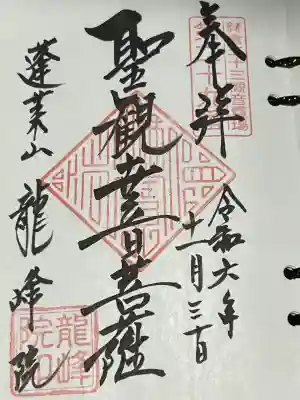 奉拝
令和六年
十一月三十日
聖観世音菩薩
蓬莱山 龍峰院
龍峰
院印